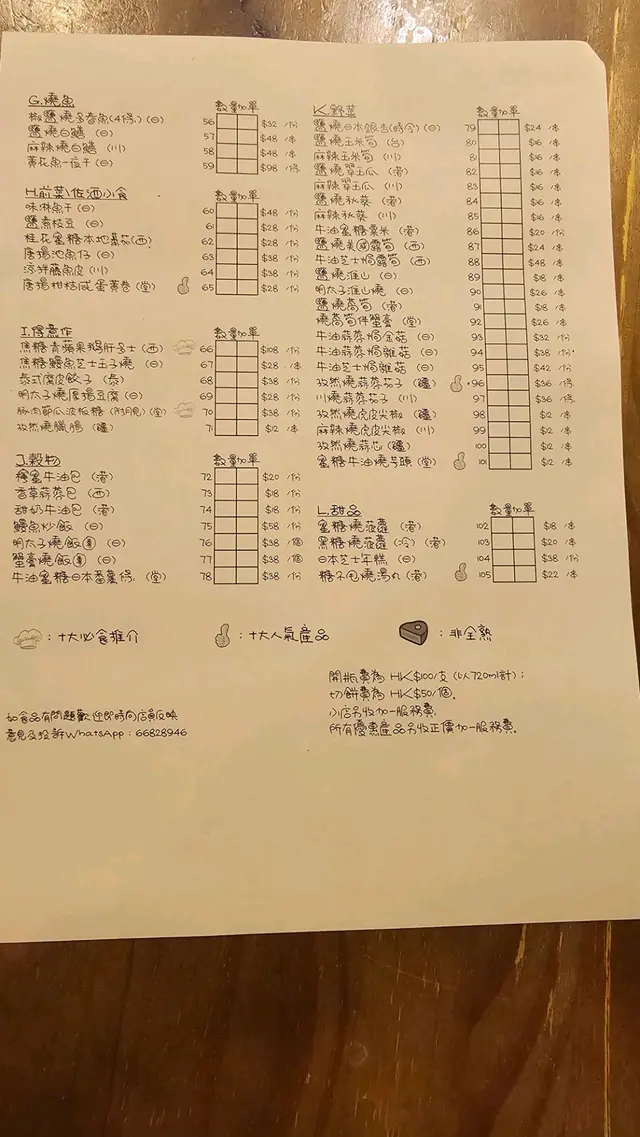 G.燒魚
數量 加單
椒鹽燒多春魚(4條)(日) 56 $32 /份
鹽燒白鱔 (日) 57 $48 /串
麻辣燒白鱔 (川) 58 $48 /串
黃花魚一夜干(日) 59 $98 /條
H.前菜/佐酒小食
味淋魚干(日) 60 $48 /份
鹽煮枝豆 (日) 61 $28 /份
桂花蜜糖本地蕃茄(西) 62 $28 /份
唐揚池魚仔(日) 63 $38 /份
涼拌脆魚皮(川) 64 $38 /份
唐揚柑桔咸蛋黃卷(堂) 65 $28 /份
I.得意作
焦糖青蘋果鵝肝多士(西) 66 $108 /份
焦糖鰻魚芝士玉子燒 (日) 67 $28 /串
泰式腐皮餃子 (泰) 68 $38 /份
明太子燒厚揚豆腐(日) 69 $28 /份
豚肉翠瓜波板糖(附月見)(堂) 70 $38 /份
孜然燒臘腸 (疆) 71 $12 /串
J.穀物
數量 加單
稽蛋牛油包 (港) 72 $20 /份
香草蒜蓉包 (西) 73 $18 /份
甜奶牛油包 (港) 74 $18 /份
鰻魚炒飯 (日) 75 $58 /份
明太子燒飯 (日) 76 $38 /個
蟹膏燒飯 (日) 77 $38 /個
牛油蜜糖日本番薯條. (堂) 78 $38 /份
K.野菜
數量 加單
鹽燒日本銀杏(時令)(日) 79 $24 /串
鹽燒玉米筍 (台) 80 $16 /串
麻辣玉米筍 (川) 81 $16 /串
鹽燒翠玉瓜 (港) 82 $16 /串
麻辣翠玉瓜 (川) 83 $16 /串
鹽燒秋葵 (港) 84 $16 /串
麻辣秋葵 (川) 85 $16 /串
牛油蜜糖粟米 (港) 86 $20 /份
鹽燒美國露筍 (西) 87 $24 /串
牛油芝士焗露筍 (西) 88 $48 /份
鹽燒淮山 (日) 89 $18 /串
明太子淮山燒 (日) 90 $26 /串
鹽燒萵筍 (港) 91 $18 /串
燒萵筍伴蟹膏 (堂) 92 $26 /串
牛油蒜蓉焗金菇 (日) 93 $32 /份
牛油蒜蓉焗雜菇 (日) 94 $38 /份
牛油芝士焗雜菇 (日) 95 $42 /份
孜然燒蒜蓉茄子 (疆) 96 $36 /條
川燒蒜蓉茄子 (川) 97 $36 /條
孜然燒虎皮尖椒 (疆) 98 $12 /串
麻辣燒虎皮尖椒 (川) 99 $12 /串
孜然燒蒜芯 (疆) 100 $12 /串
蜜糖牛油燒芋頭 (堂) 101 $12 /串
L.甜品
數量 加單
蜜糖燒菠蘿 (港) 102 $18 /串
黑糖燒菠蘿 (冷) (港) 103 $20 /串
日本芝士年糕 (日) 104 $38 /份
糖不甩燒湯丸(港) 105 $22 /串
：十大必食推介 ：十大人氣產品 ：非全熟
開瓶費為 HK$100/支(以720ml計)；
切餅費為 HK$50/個。
小店另收加一服務費.
所有優惠產品另收正價加一服務費.
如食品有問題歡迎即時向店員反映
意見及投訴WhatsApp：66828946